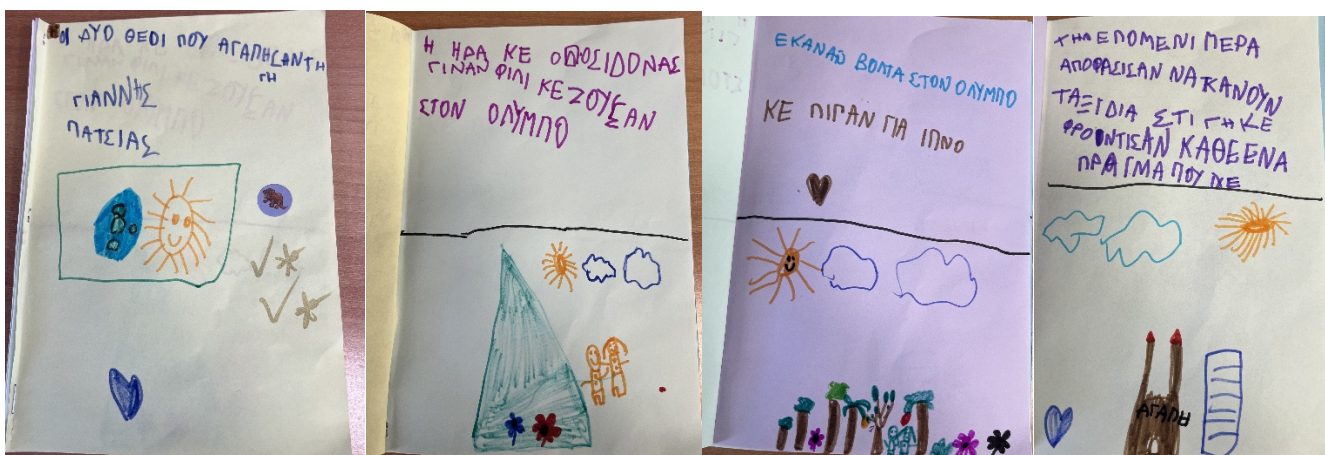 ΟΙ ΔΥΟ ΘΕΟΙ ΠΟΥ ΑΓΑΠΗΣΑΝ ΤΗ
ΓΗ
ΓΙΑΝΝΗΣ
ΠΑΤΣΙΑΣ
Η ΗΡΑ ΚΕ Ο ΠΟΣΙΔΟΝΑΣ
ΓΙΝΑΝ ΦΙΛΙ ΚΕ ΖΟΥΣΑΝ
ΣΤΟΝ ΟΛΥΜΠΟ
ΕΚΑΝΑΝ ΒΟΛΤΑ ΣΤΟΝ ΟΛΥΜΠΟ
ΚΕ ΠΙΓΑΝ ΓΙΑ ΙΠΝΟ
ΤΗΝ ΕΠΟΜΕΝΙ ΜΕΡΑ
ΑΠΟΦΑΣΙΣΑΝ ΝΑ ΚΑΝΟΥΝ
ΤΑΞΙΔΙΑ ΣΤΙ ΓΗ ΚΕ
ΦΡΟΝΤΙΣΑΝ ΚΑΘΕ ΕΝΑ
ΠΡΑΓΜΑ ΠΟΥ ΙΧΕ
ΑΓΑΠΗ